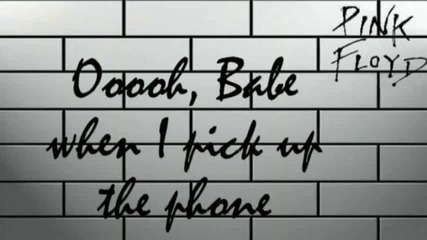 PINK
FLOYD
Ooooh, Babe
when I pick up
the phone